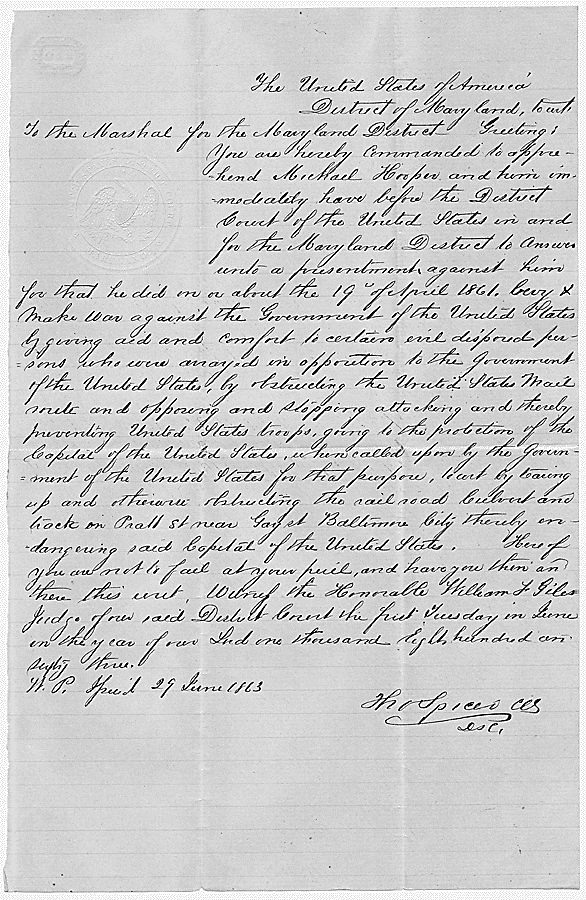 The United States of America
District of Maryland, to wit
To the Marshal for the Maryland District Greeting;
You are hereby commanded to appre-
-hend Michael Hooper and him im-
-modeately have before the District
Court of the United States in and
for the Maryland District to answer
unto a presentment against him
for that he did on or about the 19" of April 1861. levy &
make war against the Government of the United States
by giving aid and comfort to certain evil disposed per-
=sons, who were arrayed in opposition to the Government
of the United States, by obstructing the United States Mail
route and opposing and stopping attacking and thereby
preventing United States troops, going to the protection of the
Capital of the United States, when called upon by the Govern-
=ment of the United States for that purpose, to wit by tearing
up and otherwise obstructing the rail road Culvert and
track in Pratt St near Gay st Baltimore City thereby en-
-dangering said Capital of the United States. Hereof
you are not to fail at your peril, and have you then an
there this writ, Witness the Honorable William F Giles
Judge of our said District Court the first Tuesday in June
in the year of our Lord one thousand Eight hundred an
sixty three.
W. P. Issued 29 June 1863
Tho Spicer Clk
DSC.